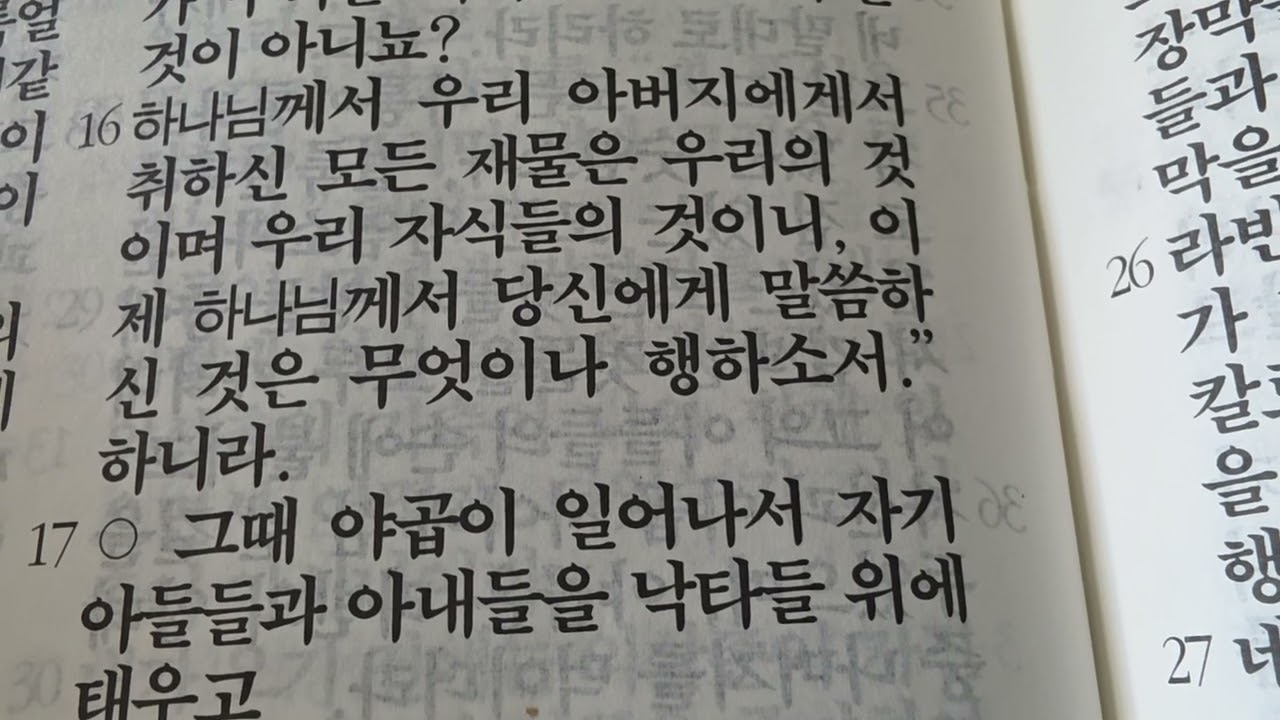 것이 아니뇨?
16 하나님께서 우리 아버지에게서
취하신 모든 재물은 우리의 것
이며 우리 자식들의 것이니, 이
제 하나님께서 당신에게 말씀하
신 것은 무엇이나 행하소서.”
하니라.
17 ○ 그때 야곱이 일어나서 자기
아들들과 아내들을 낙타들 위에
태우고
장막
들과
막을
26 라반
가
칼로
을
행
27 네